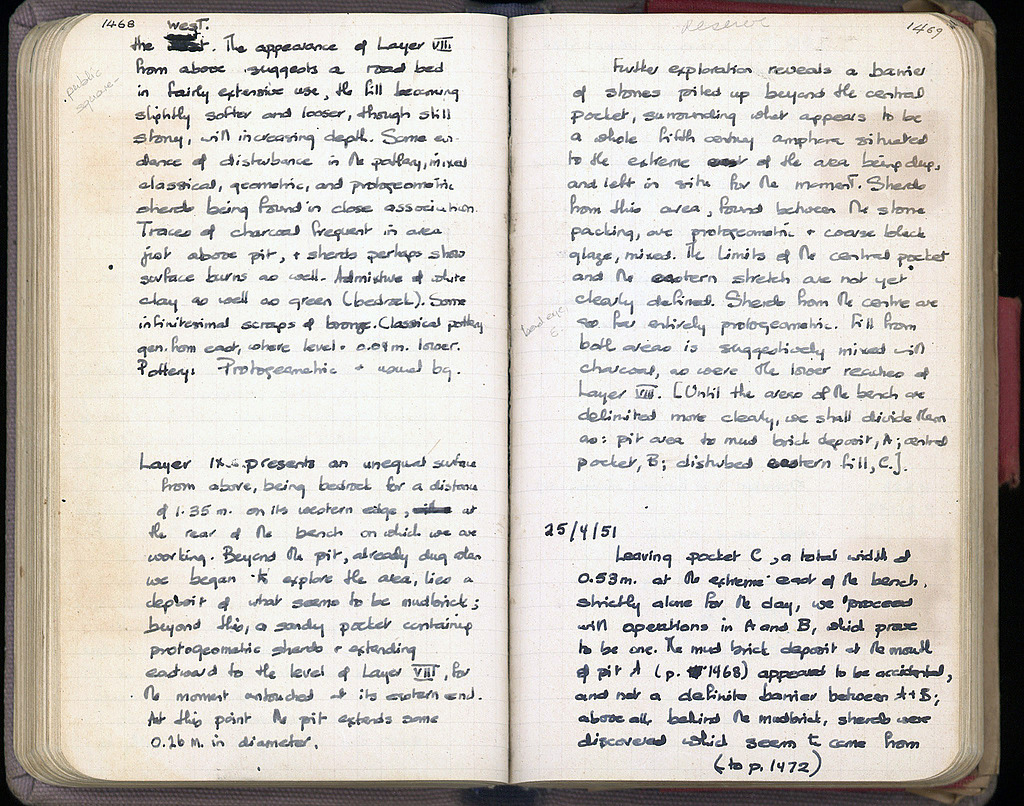 1468
west.
the . The appearance of Layer VIII
from above suggests a road bed
in fairly extensive use, the fill becoming
slightly softer and looser, though still
stony, with increasing depth. Some evi-
dence of disturbance in the pottery, mixed
classical, geometric, and protogeometric
sherds being found in close association.
Traces of charcoal frequent in area
just above pit, + sherds perhaps show
surface burns as well. Admixture of white
clay as well as green (bedrock). Some
infinitesimal scraps of bronze. Classical pottery
gen. from east, where level - 0.04 m. lower.
Pottery: Protogeometric + usual bg.
public
square-
Layer IX presents an unequal surface
from above, being bedrock for a distance
of 1.35 m. on its western edge, at
the rear of the bench on which we are
working. Beyond the pit, already dug when
we began to explore the area, lies a
deposit of what seems to be mudbrick;
beyond this, a sandy pocket containing
protogeometric sherds + extending
eastward to the level of Layer VIII, for
the moment untouched at its eastern end.
At this point the pit extends some
0.26 m. in diameter.
reserve
1469
Further exploration reveals a barrier
of stones piled up beyond the central
pocket, surrounding what appears to be
a whole fifth century amphora situated
to the extreme east of the area being dug,
and left in situ for the moment. Sherds
from this area, found between the stone
packing, are protogeometric + coarse black
glaze, mixed. The limits of the central pocket
and the eastern stretch are not yet
clearly defined. Sherds from the centre are
so far entirely protogeometric. Fill from
both areas is suggestively mixed with
charcoal, as were the lower reaches of
Layer VIII. [Until the areas of the bench are
delimited more clearly, we shall divide them
as: pit area to mud brick deposit, A; central
pocket, B; disturbed eastern fill, C.].
25/4/51
Leaving pocket C, a total width of
0.53 m. at the extreme east of the bench,
strictly alone for the day, we proceed
with operations in A and B, which prove
to be one. The mud brick deposit at the mouth
of pit A (p. 1468) appeared to be accidental,
and not a definite barrier between A + B;
above all, behind the mudbrick, sherds were
discovered which seem to come from
(to p. 1472)